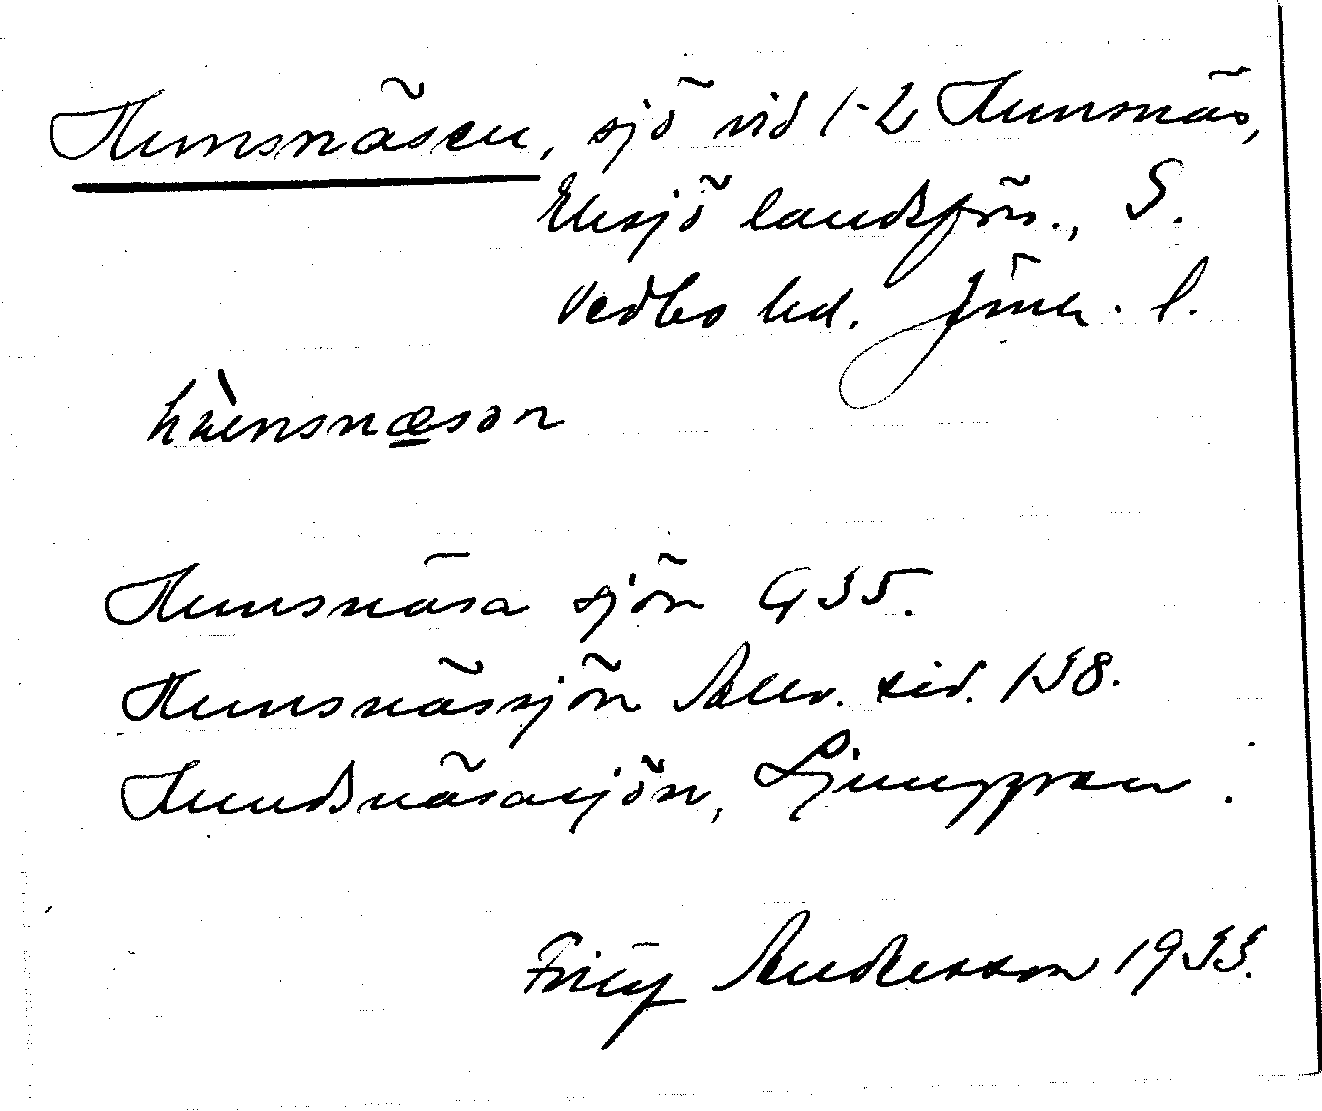 Hunsnäsen, sjö vid 1-2 Hunsnäs,
Eksjö landsförs., S.
Vedbo hd. Jönk. l.
hùnsnæsən
Hunsnäsa sjön G 35.
Hunsnässjön Allv. sid. 138.
Hundsnäsasjön, Ljunggren.
Andersson 1933.